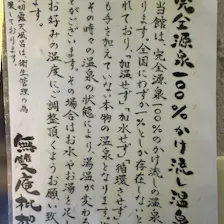 完全源泉一〇〇%かけ流し温泉
当館は、完全源泉一〇〇%のかけ流しの温泉
ります。全国にわずか一%とか存在しない
ており、「加温せず」「加水せず」「循環せず
も手を加えていない本物の温泉となります。
その時の温泉の状態により、湯温が変わ
とがございます。その場合はお水やお湯を足
お好みの温度にご調整頂くようお願い致
切露天風呂は、衛生管理の為
しております。
無雙庵 枇杷